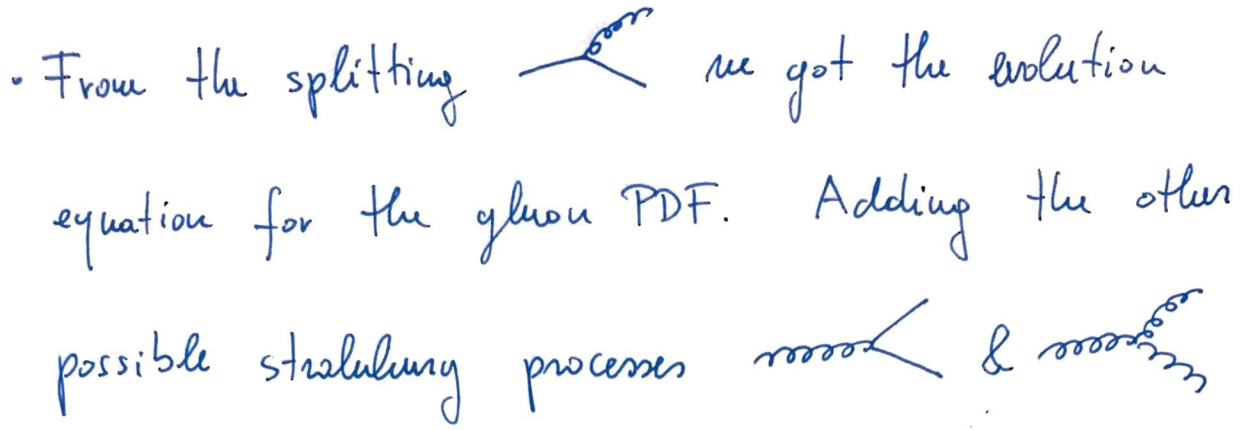 · From the splitting we got the evolution
equation for the gluon PDF. Adding the other
possible strahlung processes &